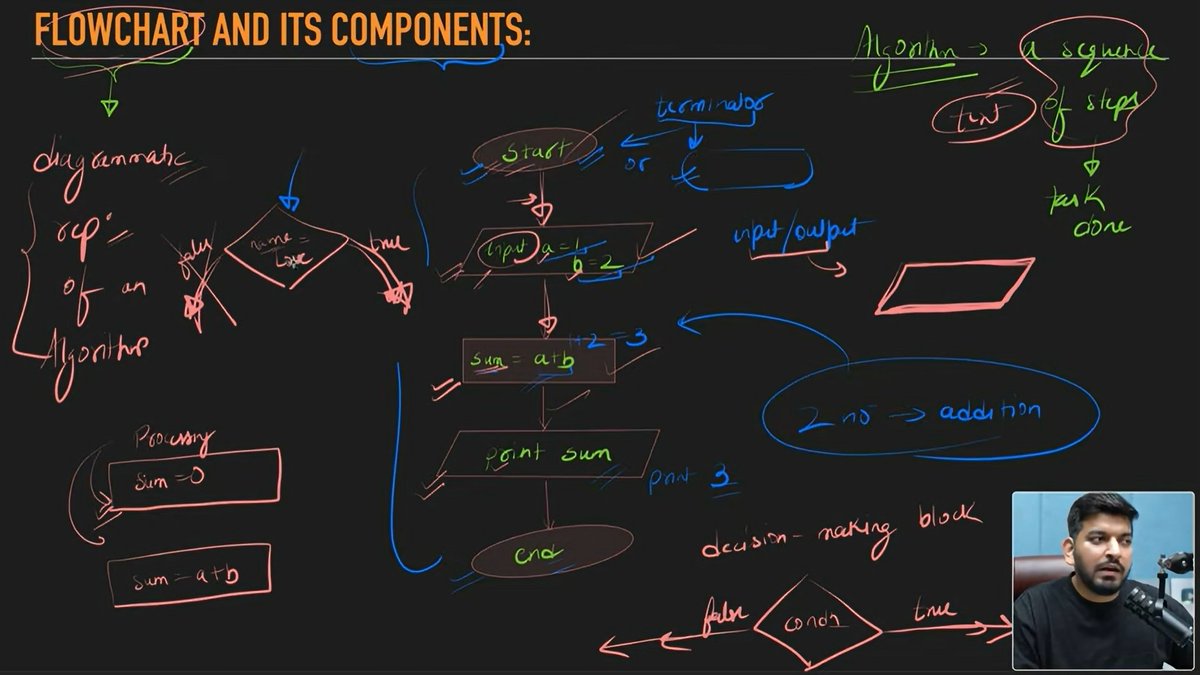 FLOWCHART AND ITS COMPONENTS:
Algorithm → a sequence
of steps
text
task
done
diagrammatic
rep.
of an
Algorithm
false
name =
Love
true
terminator
or
start
input a = 1
b = 2
input/output
sum = a+b
1+2 = 3
print sum
print 3
end
2 no → addition
Processing
sum = 0
sum = a+b
decision-making block
false
condn
true